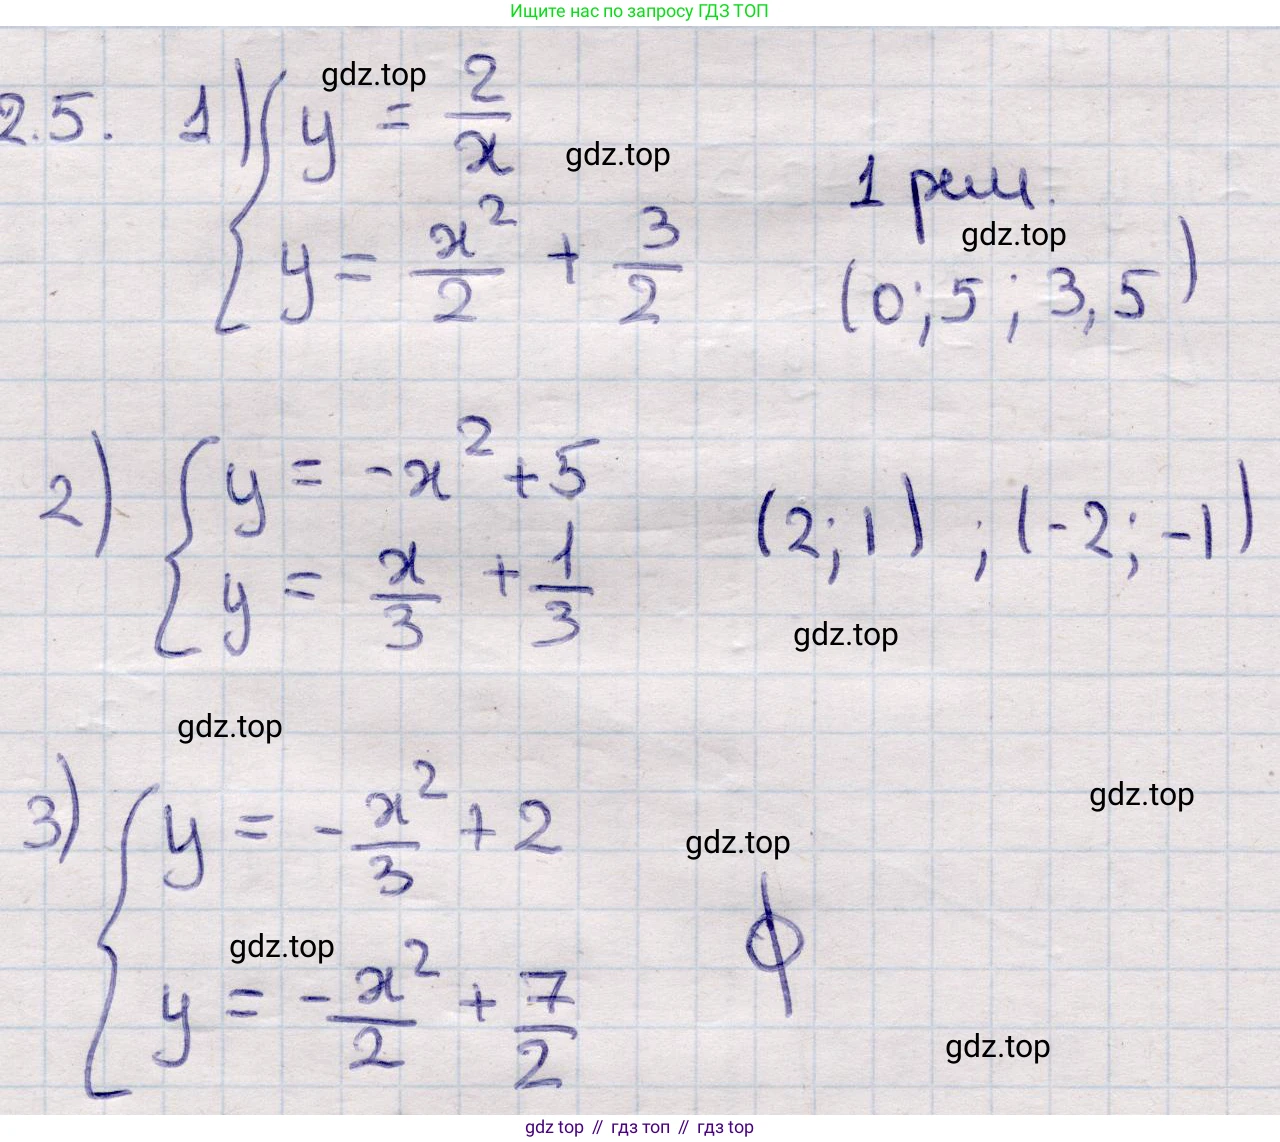 Ищите нас по запросу ГДЗ ТОП
2.5. 1) { y = 2/x
gdz.top
gdz.top
y = x²/2 + 3/2
1 реш.
gdz.top
(0;5 ; 3,5)
2) { y = -x² + 5
y = x/3 + 1/3
(2; 1) ; (-2; -1)
gdz.top
gdz.top
3) { y = -x²/3 + 2
gdz.top
gdz.top
y = -x²/2 + 7/2
gdz.top
ϕ
gdz.top
gdz top // гдз топ // гдз top